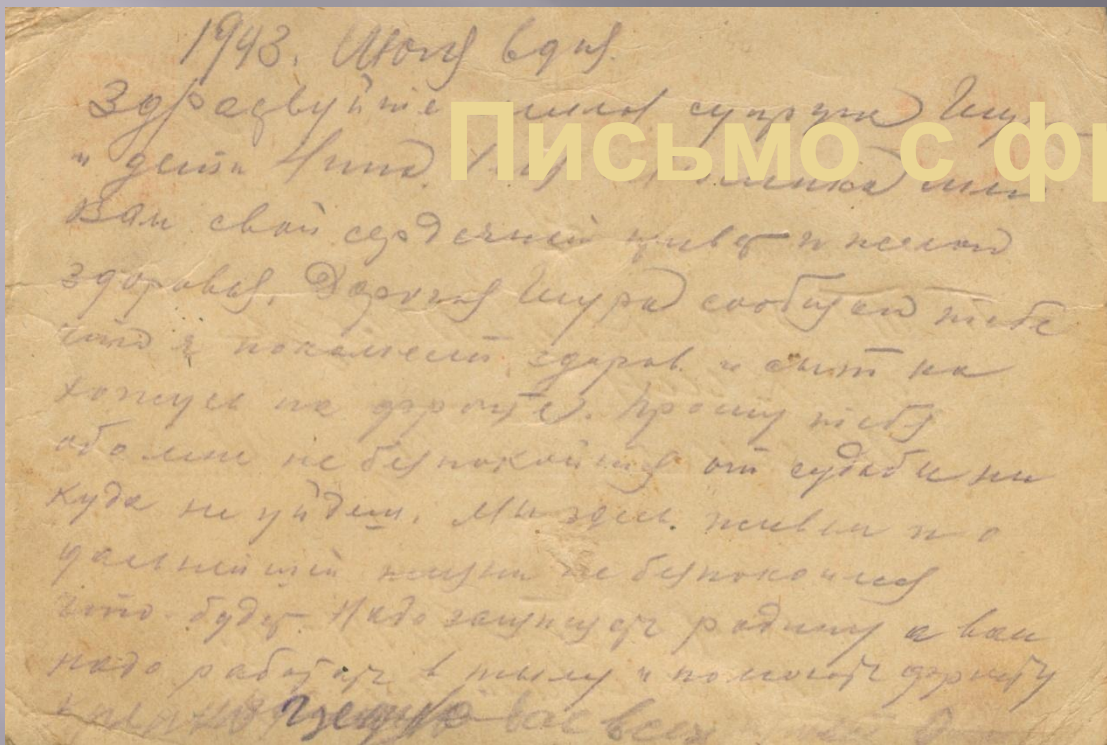 1943. Июля 6 дня.
Здраствуйте милая супруга Шура
Письмо с фр
и дети Нина
Вам свой сердечный привет и желаю
здоровья. Дорогая Шура сообщаю тебе
что я покамест здоров и сыт на
хожусь на фронте. Прошу тебя
обо мне не беспокойтеся от судьбы ни
куда не уйдеш. Мы здесь живем и о
дальнейшей жизни не беспокоимся
что будет. Надо защищать родину а вам
надо работать в тылу и помогать фронту
целую вас всех